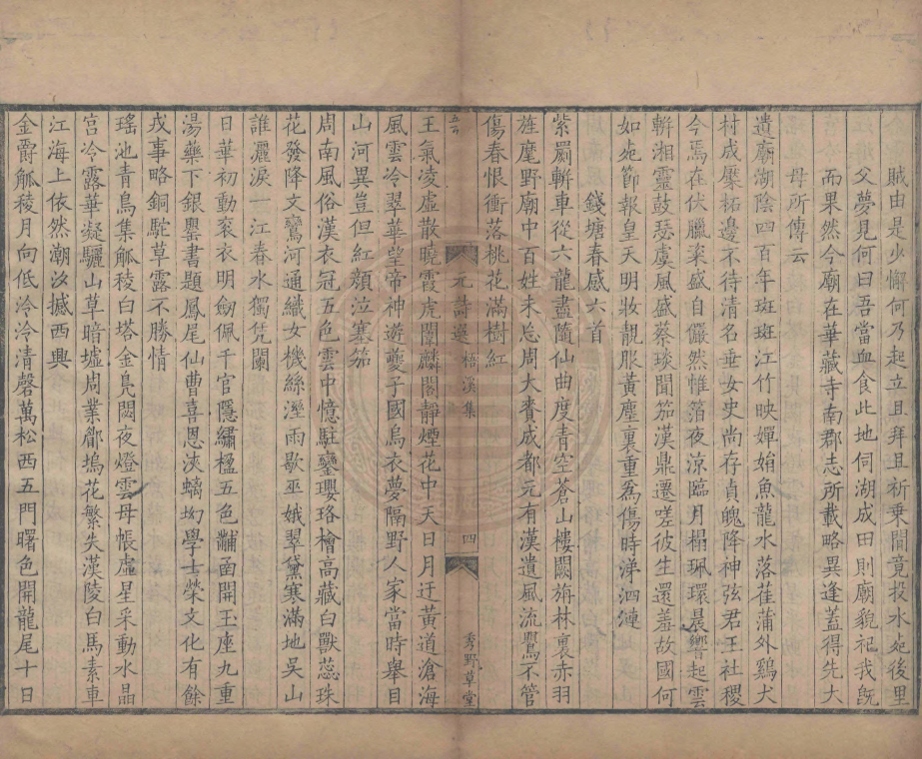 賊由是少懈何乃起立且拜且祈乘閒竟投水死後里
父夢見何曰吾當血食此地伺湖成田則廟貌祀我旣
而果然今廟在華藏寺南郡志所載略異逢蓋得先大
母所傳云
遺廟湖陰四百年斑斑江竹映嬋娟魚龍水落萑蒲外鷄犬
村成糜柘邊不待清名垂女史尚存貞魄降神弦君王社稷
今焉在伏臘粢盛自儼然帷箔夜涼臨月榻珮環晨響起雲
輧湘靈鼓瑟虞風盛蔡琰聞笳漢鼎遷嗟彼生還羞故國何
如死節報皇天明妝靚服黃塵裏重爲傷時涕泗漣
錢塘春感六首
紫罽輧車從六龍盡簫仙曲度青空蒼山樓闕旃林裏赤羽
旌麾野廟中百姓未忘周大賚成都元有漢遺風流鶯不管
傷春恨衝落桃花滿樹紅
元詩選 梧溪集 四 秀野草堂
王氣凌虛散曉霞虎闈麟閣靜煙花中天日月迂黃道滄海
風雲冷翠華望帝神遊夔子國烏衣夢隔野人家當時舉目
山河異豈但紅顏泣塞笳
周南風俗漢衣冠五色雲中憶駐鑾瓔珞檜高藏白獸蕊珠
花發降文鸞河通織女機絲溼雨歇巫娥翠黛寒滿地吳山
誰灑淚一江春水獨凭闌
日華初動袞衣明劒佩千官隱繡楹五色黼扆開玉座九重
湯藥下銀罌書題鳳尾仙曹喜恩浹螭坳學士榮文化有餘
戎事略銅駝草露不勝情
瑤池青鳥集觚稜白塔金鳧閟夜燈雲母帳虛星采動水晶
宮冷露華凝驪山草暗墟周業郿塢花繁失漢陵白馬素車
江海上依然潮汐撼西興
金爵觚稜月向低泠泠清磬萬松西五門曙色開龍尾十日